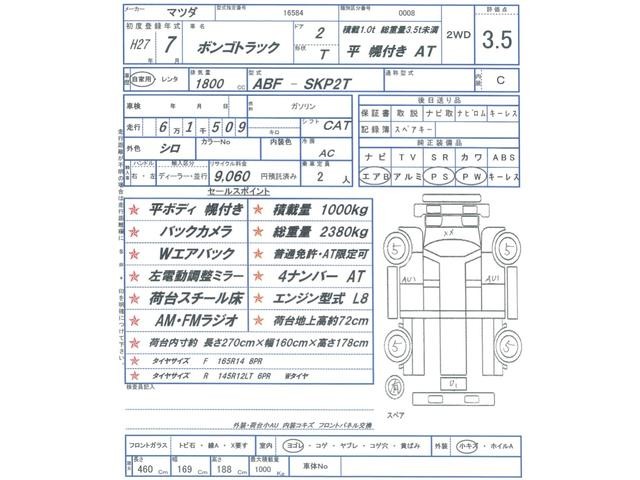 メーカー マツダ 型式指定番号 16584 類別区分番号 0008 評価点
初度登録年式 車名 ドア 2 積載1.0t 総重量3.5t未満 2WD 3.5
H27 7月 ボンゴトラック 形状 T 平 幌付き AT
車歴 自家用・レンタ 排気量 1800 CC 型式 ABF - SKP2T 通称型式 内装 C
車検 年 月 日 燃料 ガソリン 後日送り品
走行 6万1千509 キロ シフト CAT 保証書 取説 ナビ取 ナビロム キーレス
記録簿 スペアキー
外色 シロ カラーNo 内装色 冷房 AC 純正装備品
ナビ TV SR カワ ABS
ハンドル 輸入区分 リサイクル料金 乗車定員
右・左 ディーラー・並行 9,060 円預託済み 2人 エアB アルミ PS PW キーレス
走行距離が不明の場合は走行距離欄に
印を明確につけて下さい。
セールスポイント
★ 平ボディ 幌付き ★ 積載量 1000kg
★ バックカメラ ★ 総重量 2380kg
★ Wエアバック ★ 普通免許・AT限定可
★ 左電動調整ミラー ★ 4ナンバー AT
★ 荷台スチール床 ★ エンジン型式 L8
★ AM・FMラジオ ★ 荷台地上高約72cm
★ 荷台内寸約 長さ270cm×幅160cm×高さ178cm
★ タイヤサイズ F 165R14 8PR
★ タイヤサイズ R 145R12LT 6PR Wタイヤ
検査員記入
外装・荷台小AU 内装コキズ フロントパネル交換
XX
5 5
AU1 AU1
5 5
U1
スペア
フロントガラス トビ石・線A・X要す 室内 ヨゴレ・コゲ・ヤブレ・コゲ穴・黄ばみ 外装 小キズ・ホイルA
長さ 460 Cm 幅 169 Cm 高さ 188 Cm 最大積載量 1000 Kg 車体No